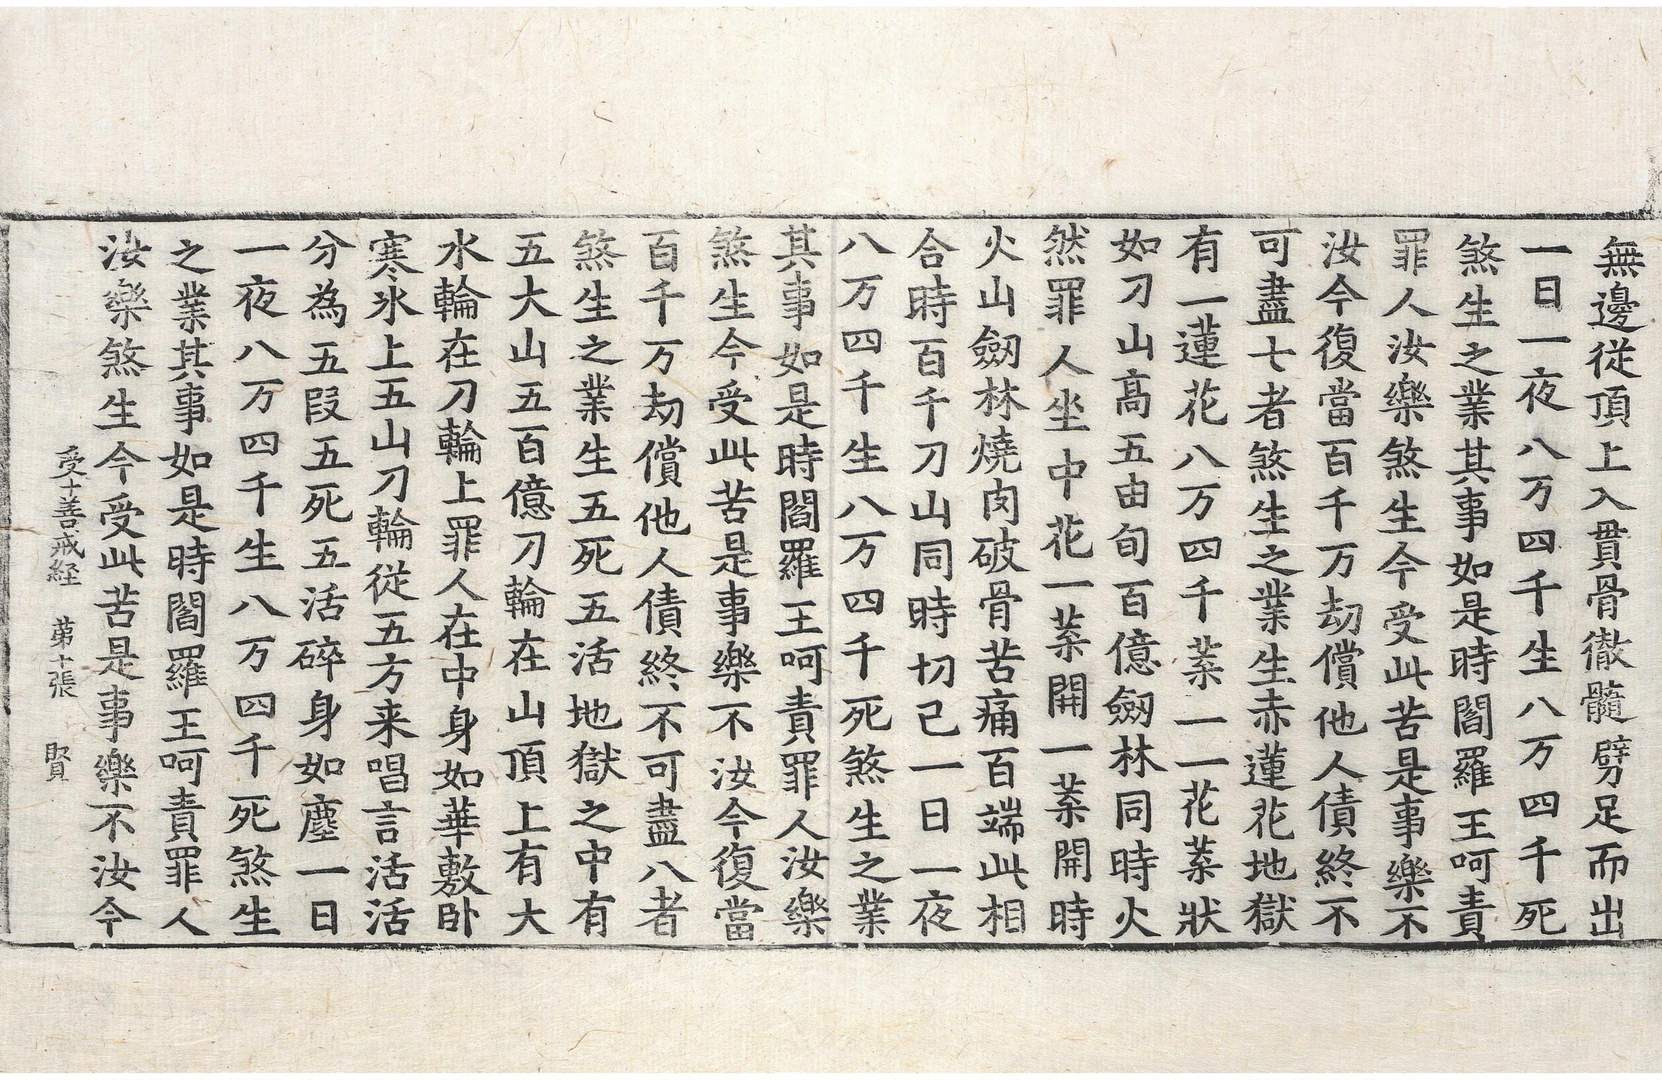 無邊從頂上入貫骨徹髓劈足而出
一日一夜八万四千生八万四千死
煞生之業其事如是時閻羅王呵責
罪人汝樂煞生今受此苦是事樂不
汝今復當百千万劫償他人債終不
可盡七者煞生之業生赤蓮花地獄
有一蓮花八万四千葉一一花葉狀
如刀山高五由旬百億劒林同時火
然罪人坐中花一葉開一葉開時
火山劒林燒肉破骨苦痛百端此相
合時百千刀山同時切己一日一夜
八万四千生八万四千死煞生之業
其事如是時閻羅王呵責罪人汝樂
煞生今受此苦是事樂不汝今復當
百千万劫償他人債終不可盡八者
煞生之業生五死五活地獄之中有
五大山五百億刀輪在山頂上有大
水輪在刀輪上罪人在中身如華敷卧
寒氷上五山刀輪從五方来唱言活活
分為五段五死五活碎身如塵一日
一夜八万四千生八万四千死煞生
之業其事如是時閻羅王呵責罪人
汝樂煞生今受此苦是事樂不汝今
受十善戒経 第十張 賢